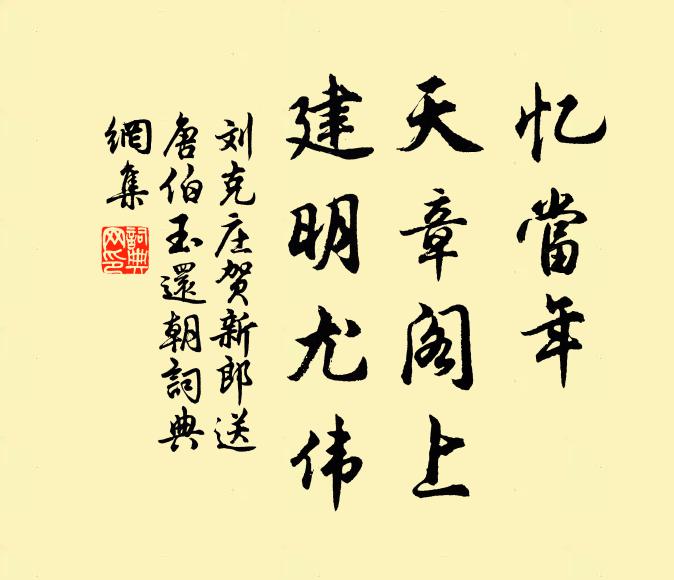 忆當年
天章阁上
建明尤伟
刘克庄贺新郎送
唐伯玉還朝詞典
網集
詞典
网印